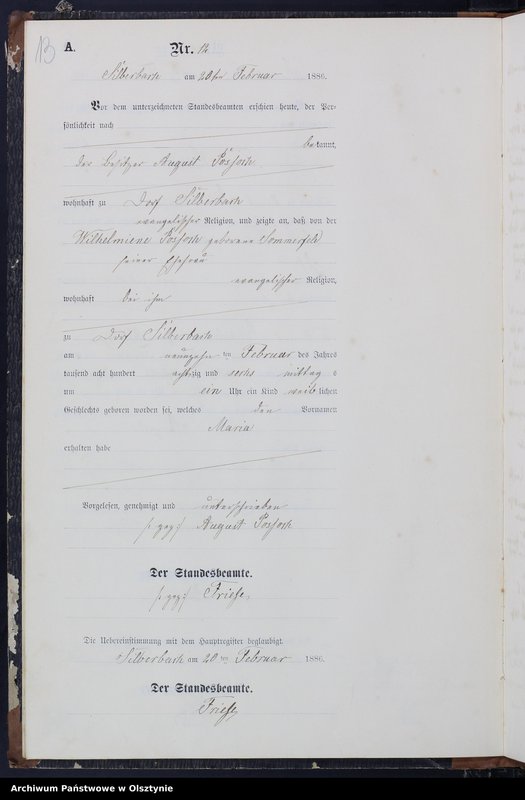 13
A.
Nr. 12
Silberbach am 20ten Februar 1886.
Vor dem unterzeichneten Standesbeamten erschien heute, der Per-
sönlichkeit nach
bekannt,
der Besitzer August
wohnhaft zu Dorf Silberbach
evangelischer Religion, und zeigte an, daß von der
Wilhelmiene geborene Sommerfeld
seiner Ehefrau
evangelischer Religion,
wohnhaft bei ihm
zu Dorf Silberbach
am neunzehn ten Februar des Jahres
tausend acht hundert achtzig und sechs mittag s
um ein Uhr ein Kind weib lichen
Geschlechts geboren worden sei, welches den Vornamen
Maria
erhalten habe
Vorgelesen, genehmigt und unterschrieben
gez: August
Der Standesbeamte.
gez: Friese,
Die Uebereinstimmung mit dem Hauptregister beglaubigt.
Silberbach am 20 ten Februar 1886.
Der Standesbeamte.
Friese
Archiwum Państwowe w Olsztynie